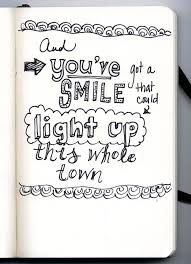 And
you've got a
SMILE that could
light up
this whole
town